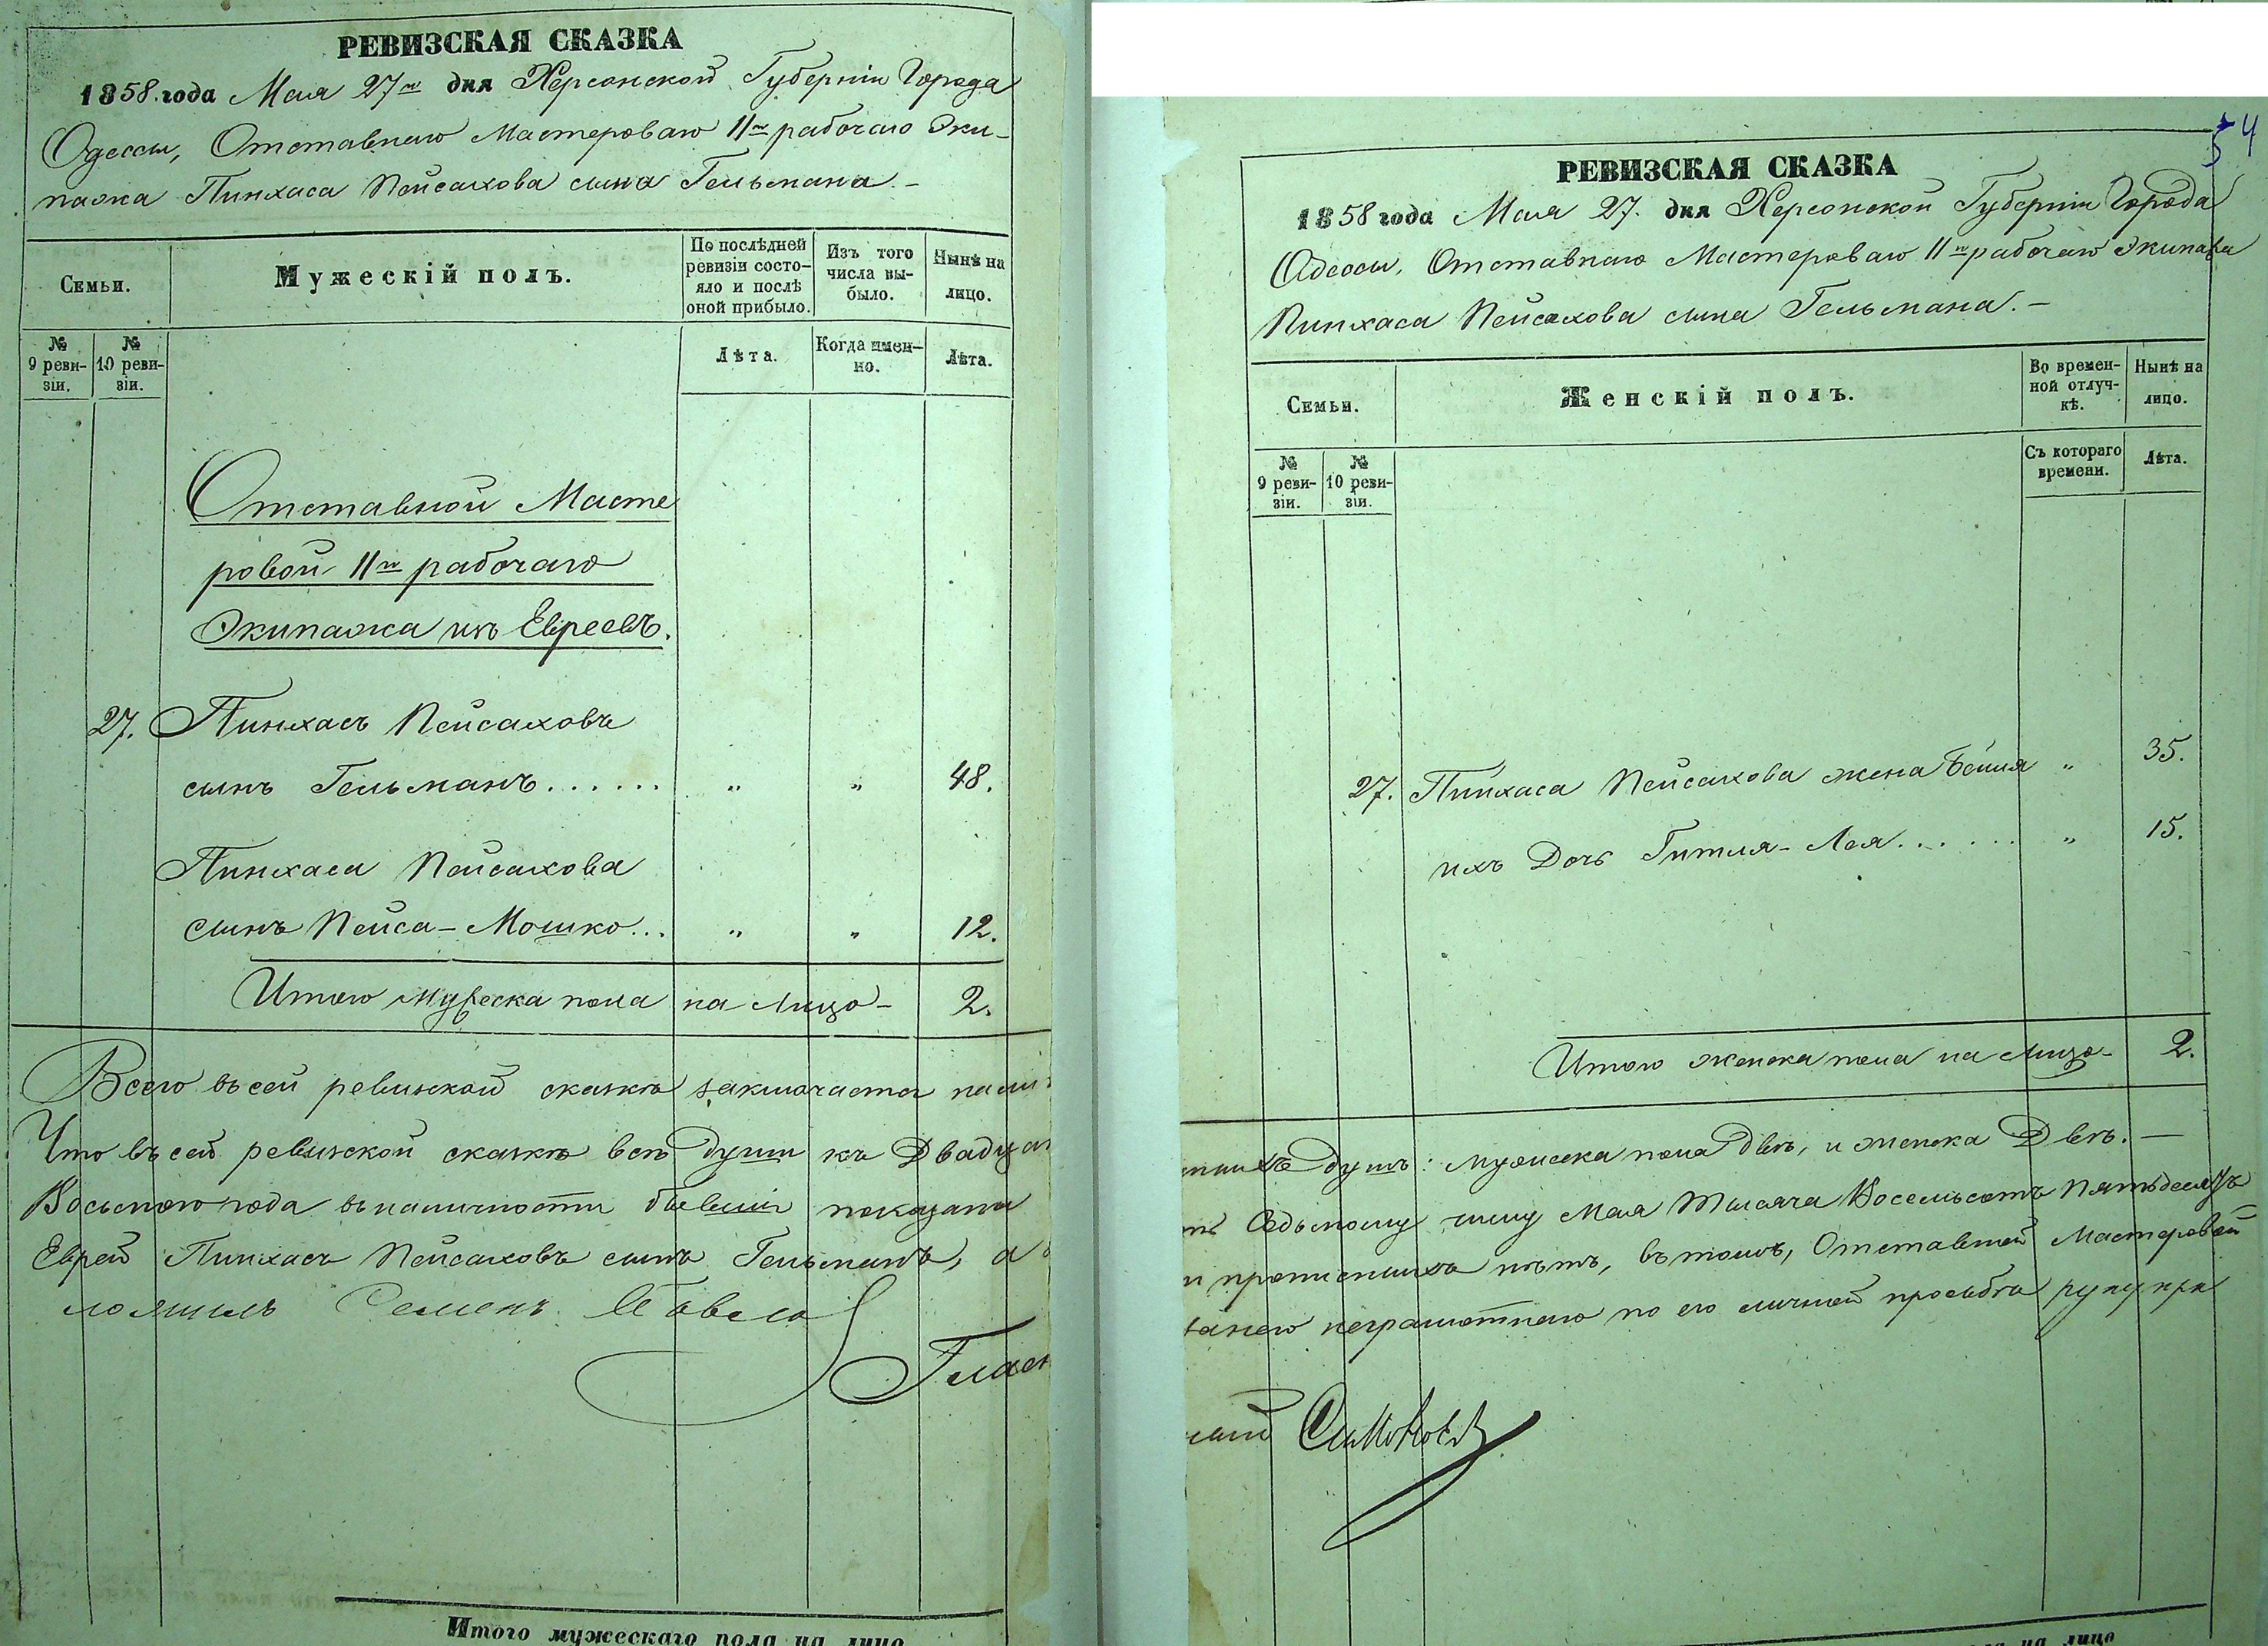 РЕВИЗСКАЯ СКАЗКА
1858. года Мая 27го дня Херсонской Губерніи Города
Одессы, Отставнаго Мастероваго 11го рабочаго Эки-
пажа Пинхаса Пейсахова сына Гельмана. –
Семьи.
Мужескій полъ.
По послѣдней ревизіи состо-яло и послѣ оной прибыло.
Изъ того числа вы-было.
Нынѣ на лицо.
№ 9 реви-зіи.
№ 10 реви-зіи.
Лѣта.
Когда имен-но.
Лѣта.
Отставной Масте
ровой 11го рабочаго
Экипажа изъ Евреевъ.
27. Пинхасъ Пейсаховъ
сынъ Гельманъ...... " " 48.
Пинхаса Пейсахова
сынъ Пейса-Мошко... " " 12.
Итого мужеска пола на лицо – 2.
Всего въ сей ревизской сказкѣ заключается
Что въ сей ревизской сказкѣ всѣ души къ Двадцат
Восьмого года въ наличности бывшіе показаны
Еврей Пинхасъ Пейсаховъ сынъ Гельманъ, а
ложилъ Семенъ
Гласн
Итого мужескаго пола на лицо
4
РЕВИЗСКАЯ СКАЗКА
1858 года Мая 27. дня Херсонской Губерніи Города
Одессы, Отставнаго Мастероваго 11го рабочаго Экипажа
Пинхаса Пейсахова сына Гельмана. –
Семьи.
Женскій полъ.
Во времен-ной отлуч-кѣ.
Нынѣ на лицо.
№ 9 реви-зіи.
№ 10 реви-зіи.
Съ котораго времени.
Лѣта.
27. Пинхаса Пейсахова жена Бейля " 35.
ихъ Дочь Гитля-Лея...... " 15.
Итого женска пола на лицо – 2.
душъ: мужеска пола двѣ, и женска Двѣ. –
Седьмому числу Мая Тысяча Восемьсотъ Пятьдесятъ
и прописныхъ нѣтъ, въ томъ, Отставной Мастеровой
занего неграмотнаго по его личной просьбѣ руку при
ный Симонов
на лицо